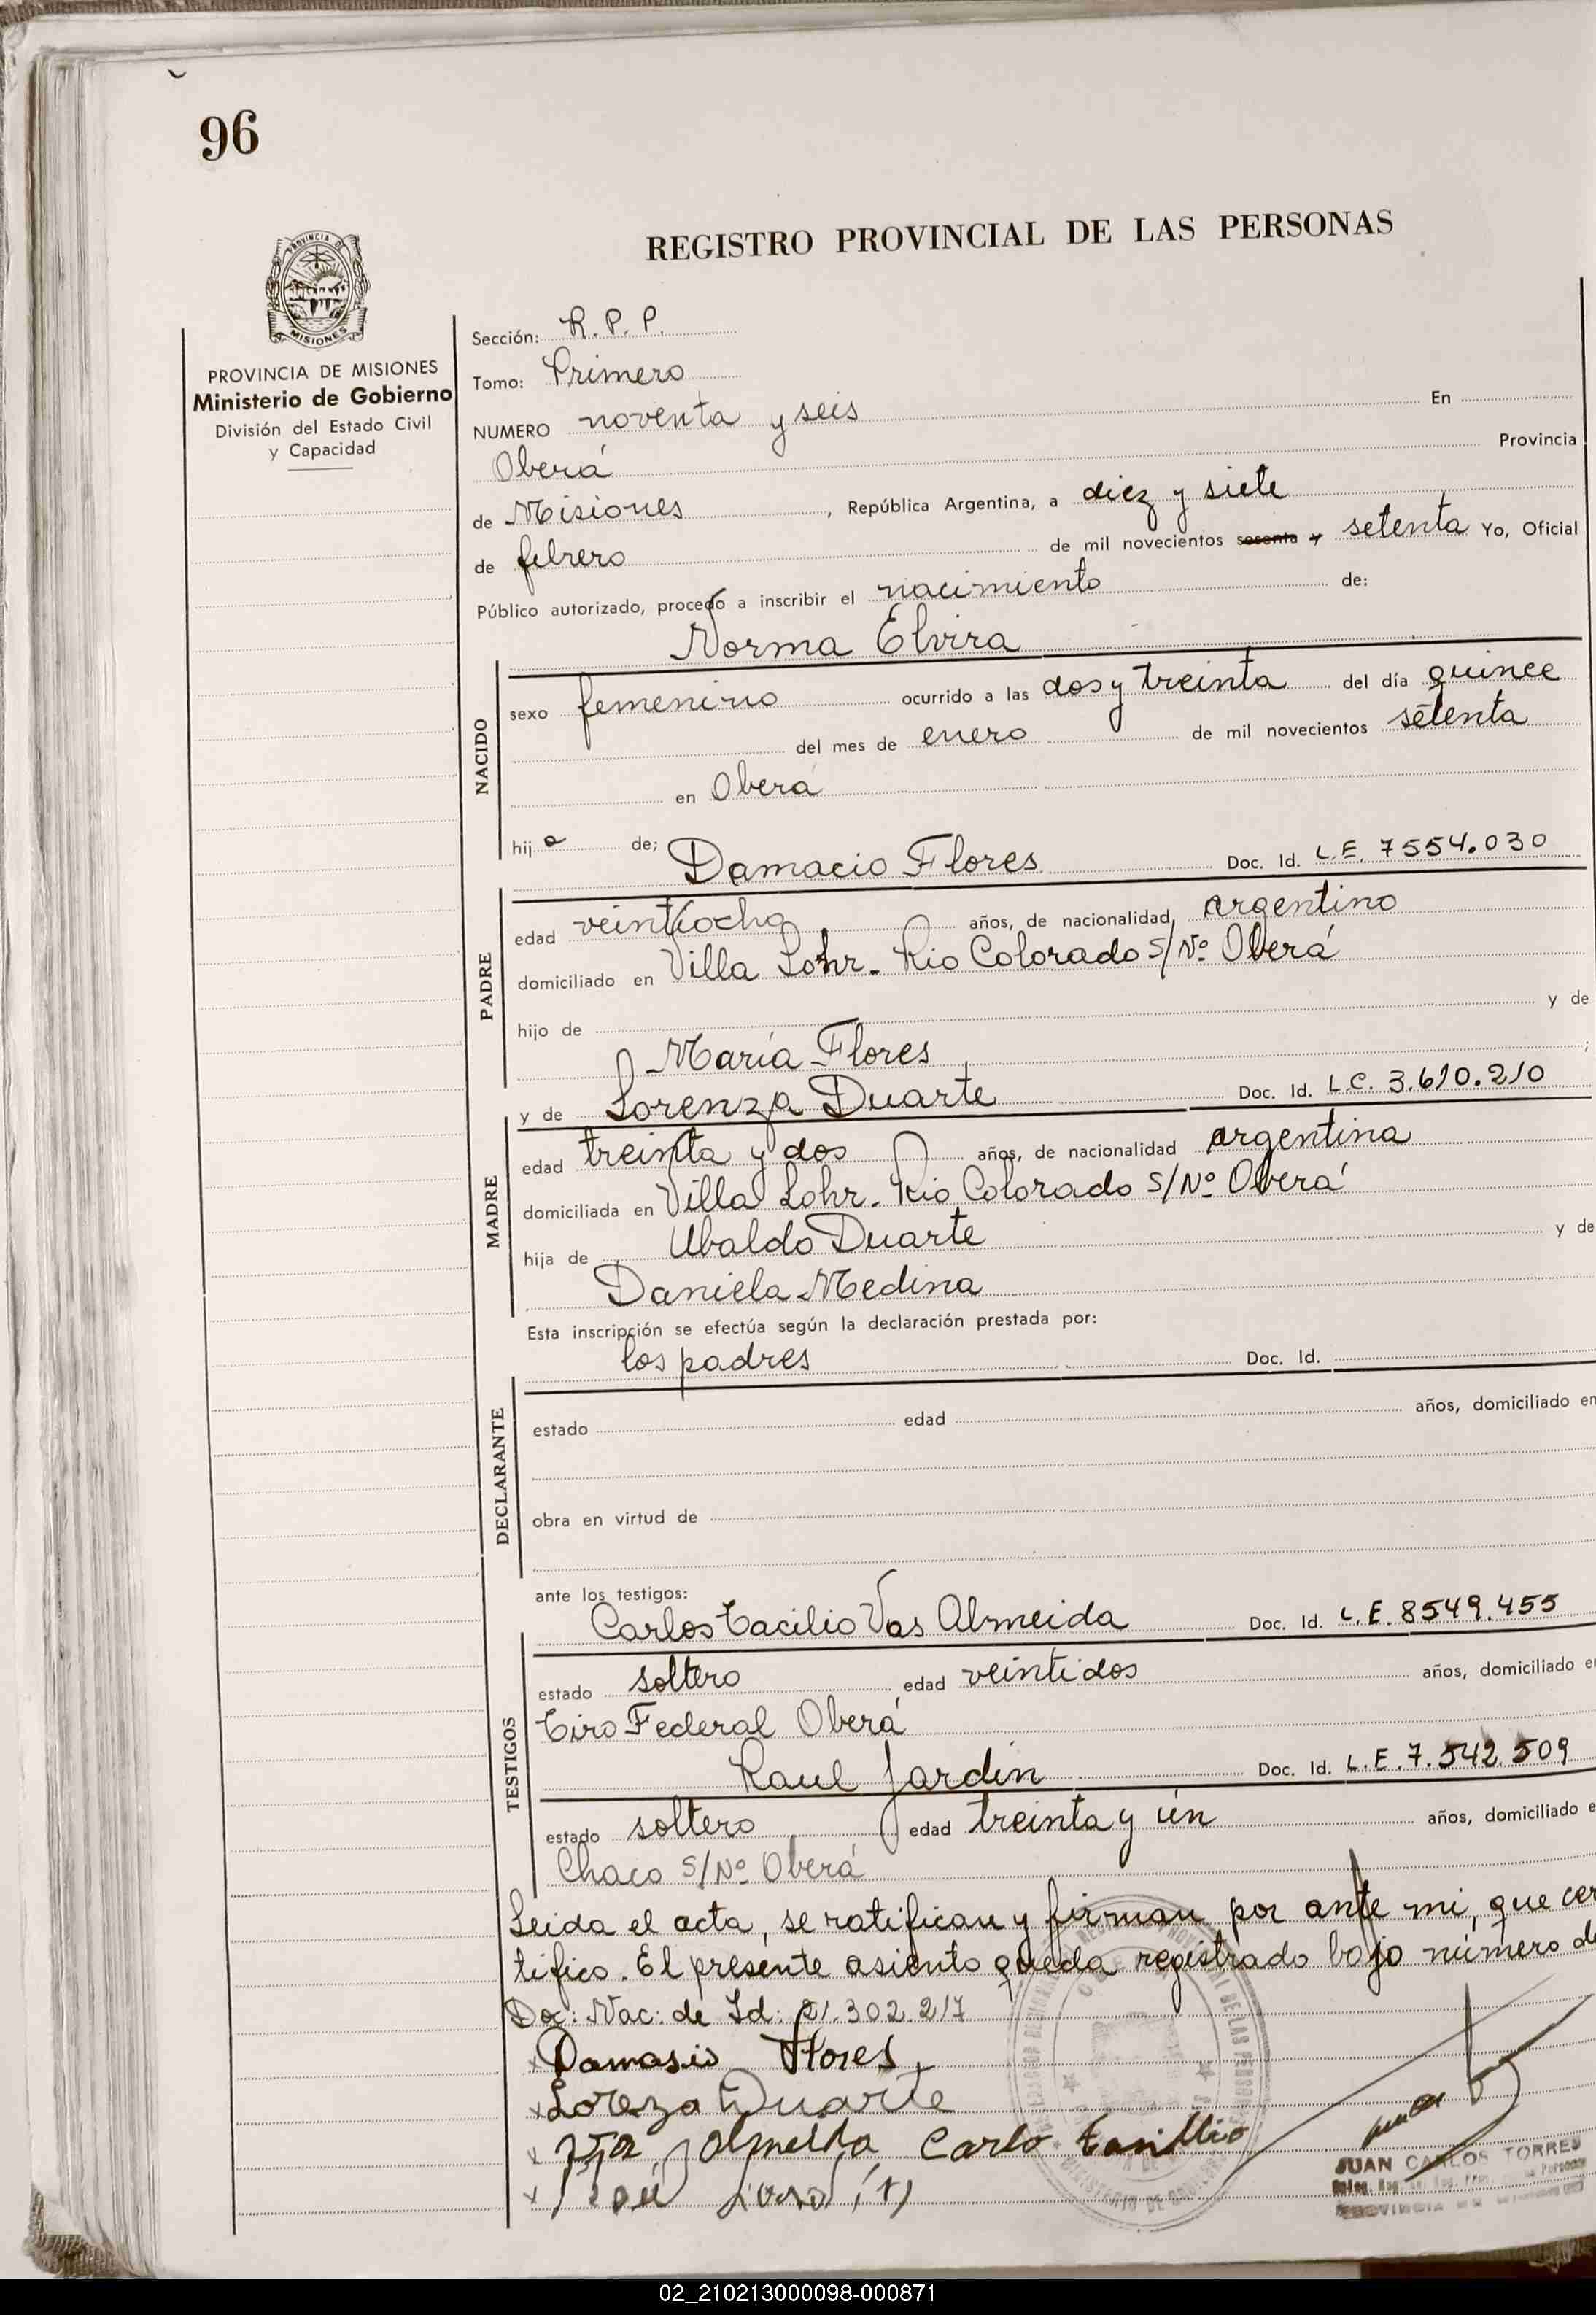 96
REGISTRO PROVINCIAL DE LAS PERSONAS
PROVINCIA DE
MISIONES
PROVINCIA DE MISIONES
Ministerio de Gobierno
División del Estado Civil
y Capacidad
Sección: R. P. P.
Tomo: Primero
NUMERO noventa y seis En
Oberá Provincia
de Misiones, República Argentina, a diez y siete
de febrero de mil novecientos sesenta y setenta Yo, Oficial
Público autorizado, procedo a inscribir el nacimiento de:
Norma Elvira
NACIDO
sexo femenino ocurrido a las dos y treinta del día quince
del mes de enero de mil novecientos setenta
en Oberá
hija de; Damacio Flores Doc. Id. L.E. 7554.030
PADRE
edad veintiocho años, de nacionalidad argentino
domiciliado en Villa Lohr. Rio Colorado S/Nº Oberá
hijo de y de
María Flores ;
y de Lorenza Duarte Doc. Id. L.C. 3.610.210
MADRE
edad treinta y dos años, de nacionalidad argentina
domiciliada en Villa Lohr. Rio Colorado S/Nº Oberá
hija de Ubaldo Duarte y de
Daniela Medina
Esta inscripción se efectúa según la declaración prestada por:
los padres Doc. Id.
DECLARANTE
estado edad años, domiciliado en
obra en virtud de
ante los testigos:
Carlos Tacilio Vas Almeida Doc. Id. L.E. 8549.455
TESTIGOS
estado soltero edad veintidos años, domiciliado en
Tiro Federal Oberá
Raul Jardin Doc. Id. L.E. 7.542.509
estado soltero edad treinta y un años, domiciliado e
Chaco S/Nº Oberá
Leida el acta, se ratifican y firman por ante mi, que cer
tifico. El presente asiento queda registrado bajo número de
Doc: Nac: de Id: 21.302.217
x Damasio Flores
x Loreza Duarte
x Almeida Carlo
x
JUAN CARLOS TORRES
PROVINCIA
02_210213000098-000871